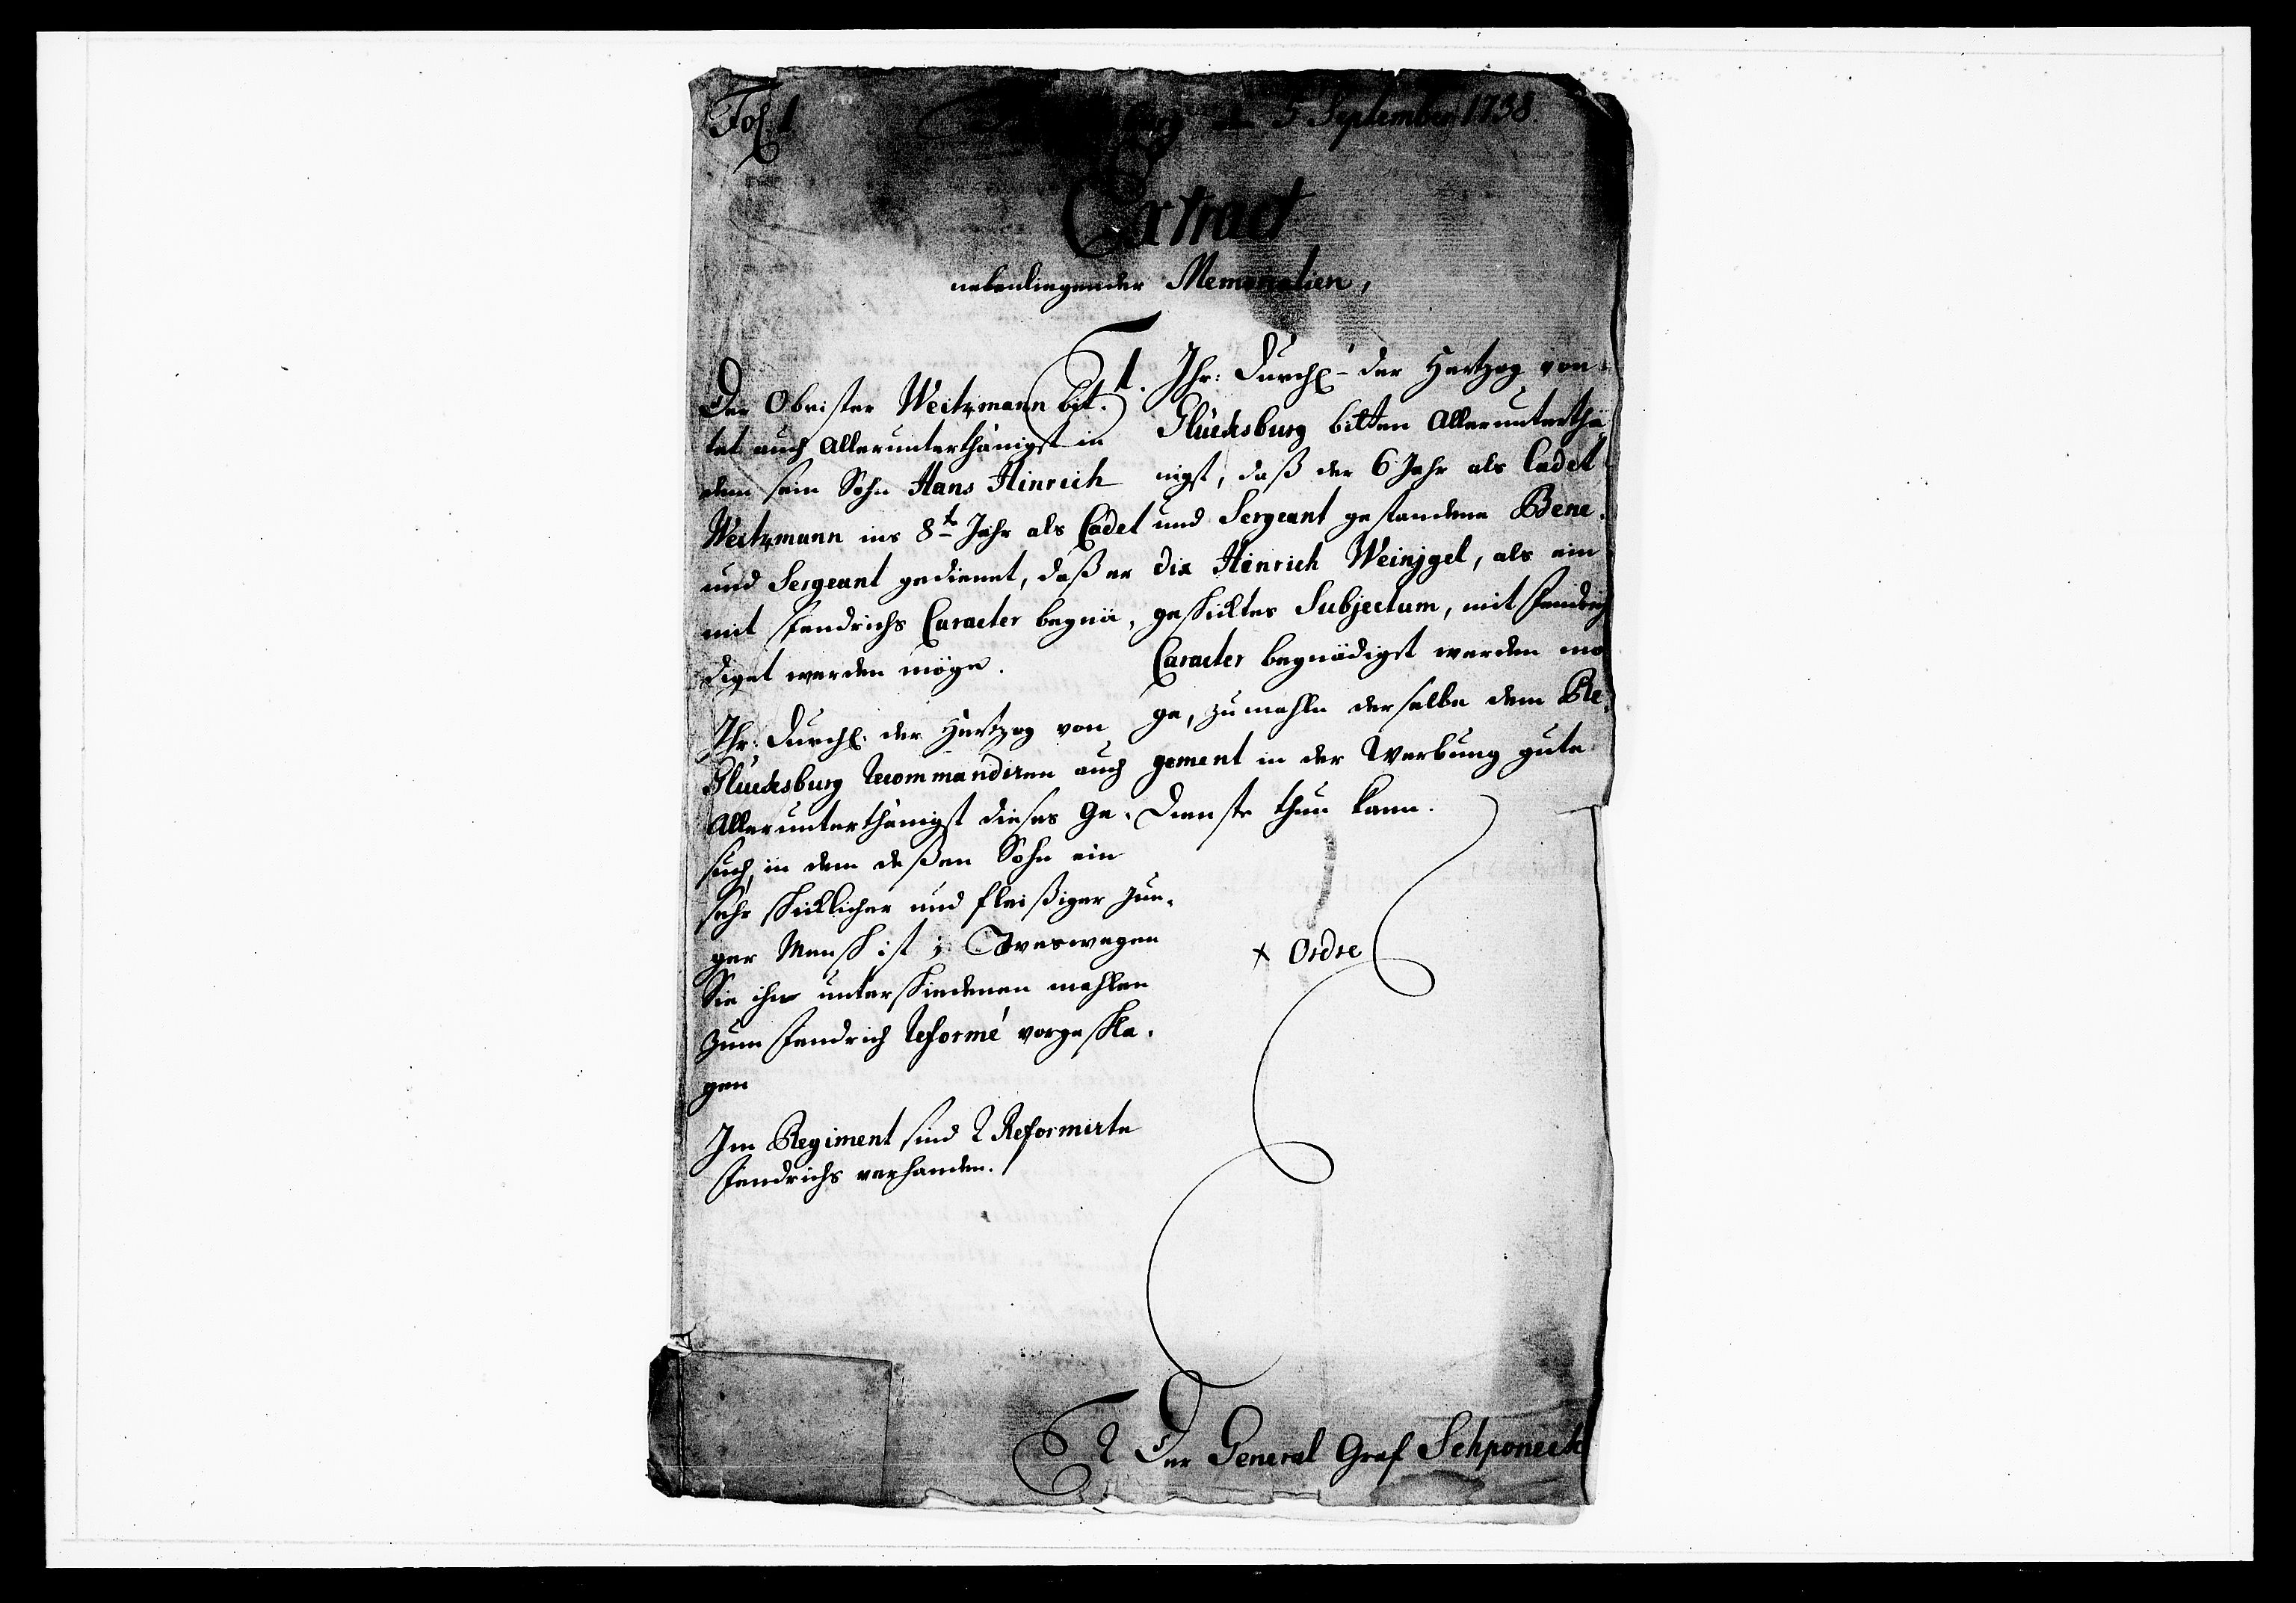 Fol. 1
den 5 September 1738.
Extract
nebenliegender Memorialien,
Der Obrister Weitzmann bit-
tet auch Allerunterthänigst in
dem sein Sohn Hans Hinrich
Weitzmann ins 8te Jahr als Cadet
und Sergeant gedienet, daß er
mit Fendrichs Caracter begnä-
diget werden möge.
Ihr: Durchl: der Hertzog von
Glücksburg recommandiren auch
Allerunterthänigst dieses Ge-
such, in dem deßen Sohn ein
sehr schicklicher und fleißiger jun-
ger Mensch ist; Weswegen
Sie ihn unterschiedenen mahlen
zum Fendrich reformé vorgeschla-
gen
Im Regiment sind 2 Reformirte
Fendrichs verhanden.
1. Ihr: Durchl: der Hertzog von
Glücksburg bitten Allerunterthä-
nigst, daß der 6 Jahr als Cadet
und Sergeant gestandene Bene-
dix Hinrich Weinjgel, als ein
geschicktes Subjectum, mit Fendrichs
Caracter begnädigst werden mö-
ge, zumahln derselbe dem Re-
gement in der Werbung gute
Dienste thun kann.
x Ordre
2 Der General Graf Schponeck